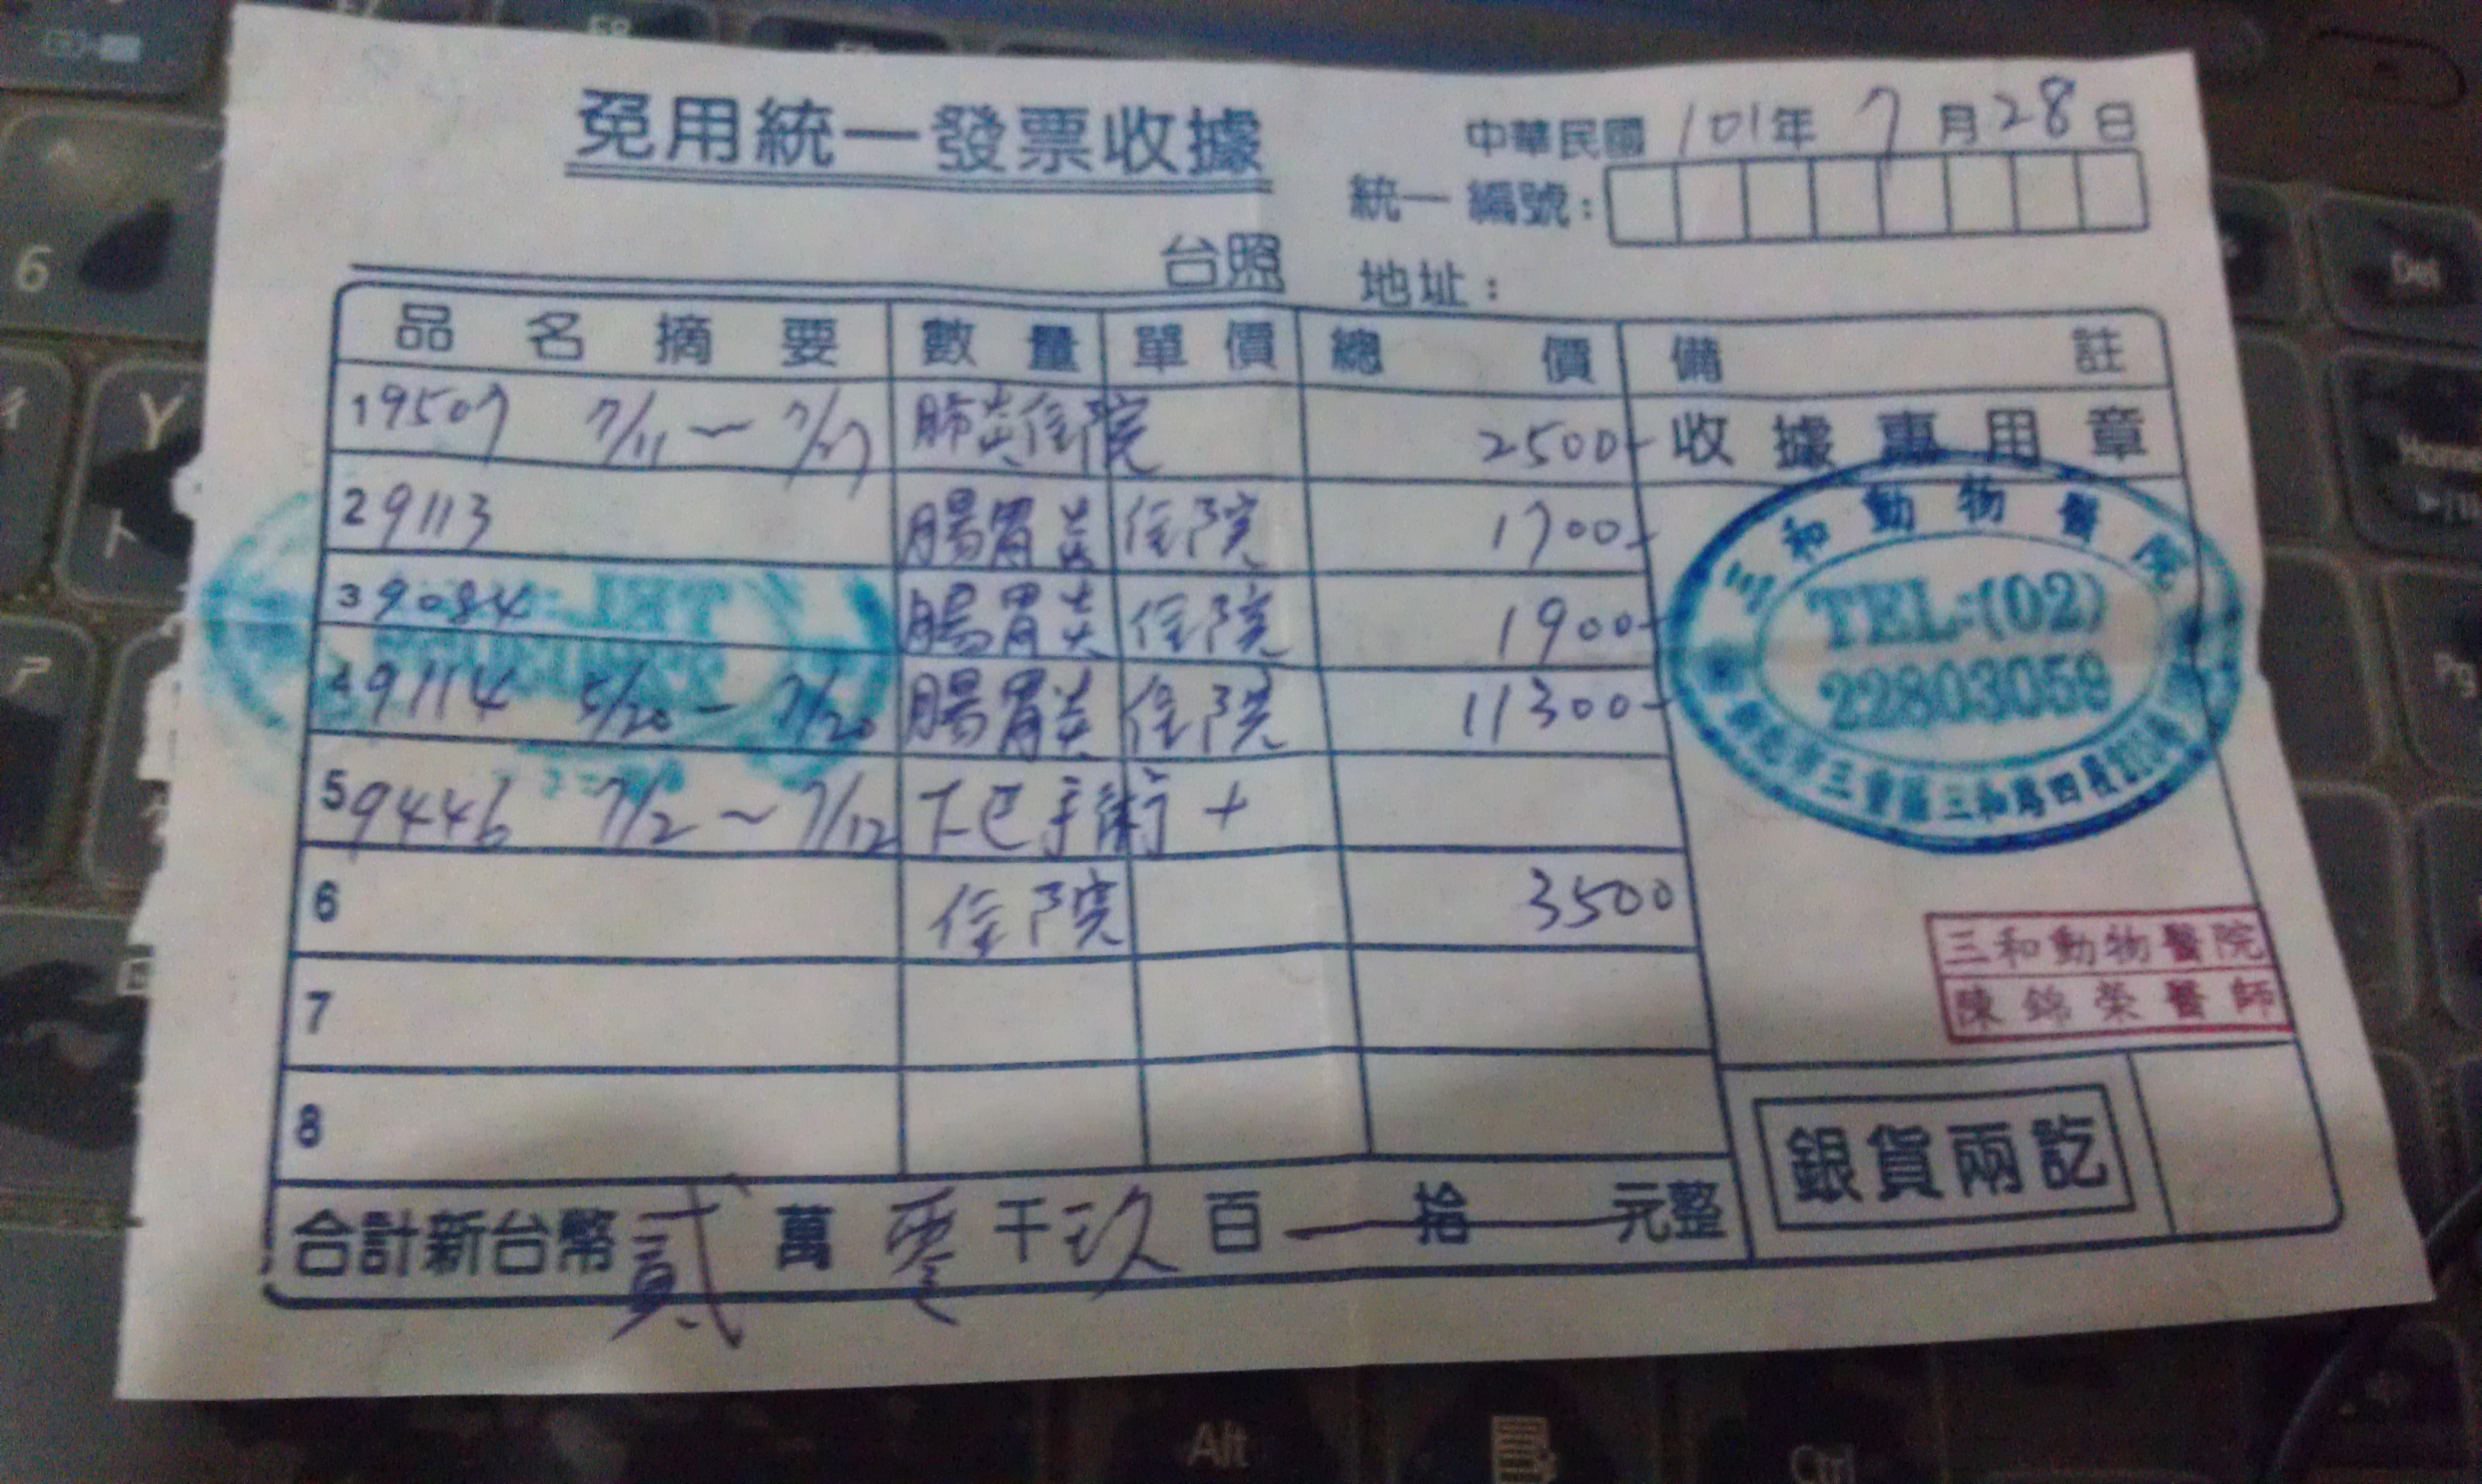 免用統一發票收據
中華民國 101年 7月28日
統一編號：
台照 地址：
品名摘要 數量 單價 總價 備註
1 9507 7/11～7/27 肺炎住院 2500- 收據專用章
2 9113 腸胃炎 住院 1700-
3 9084 腸胃炎 住院 1900-
4 9114 5/20－7/20 腸胃炎 住院 11300-
5 9446 7/2～7/12 下巴手術＋
6 住院 3500
7
8
三和動物醫院
TEL:(02)
22803059
三重區三和路四段
三和動物醫院
陳錦榮醫師
合計新台幣貳萬零千玖百拾元整
銀貨兩訖
6
Y
Alt
Ctrl
Del
Home